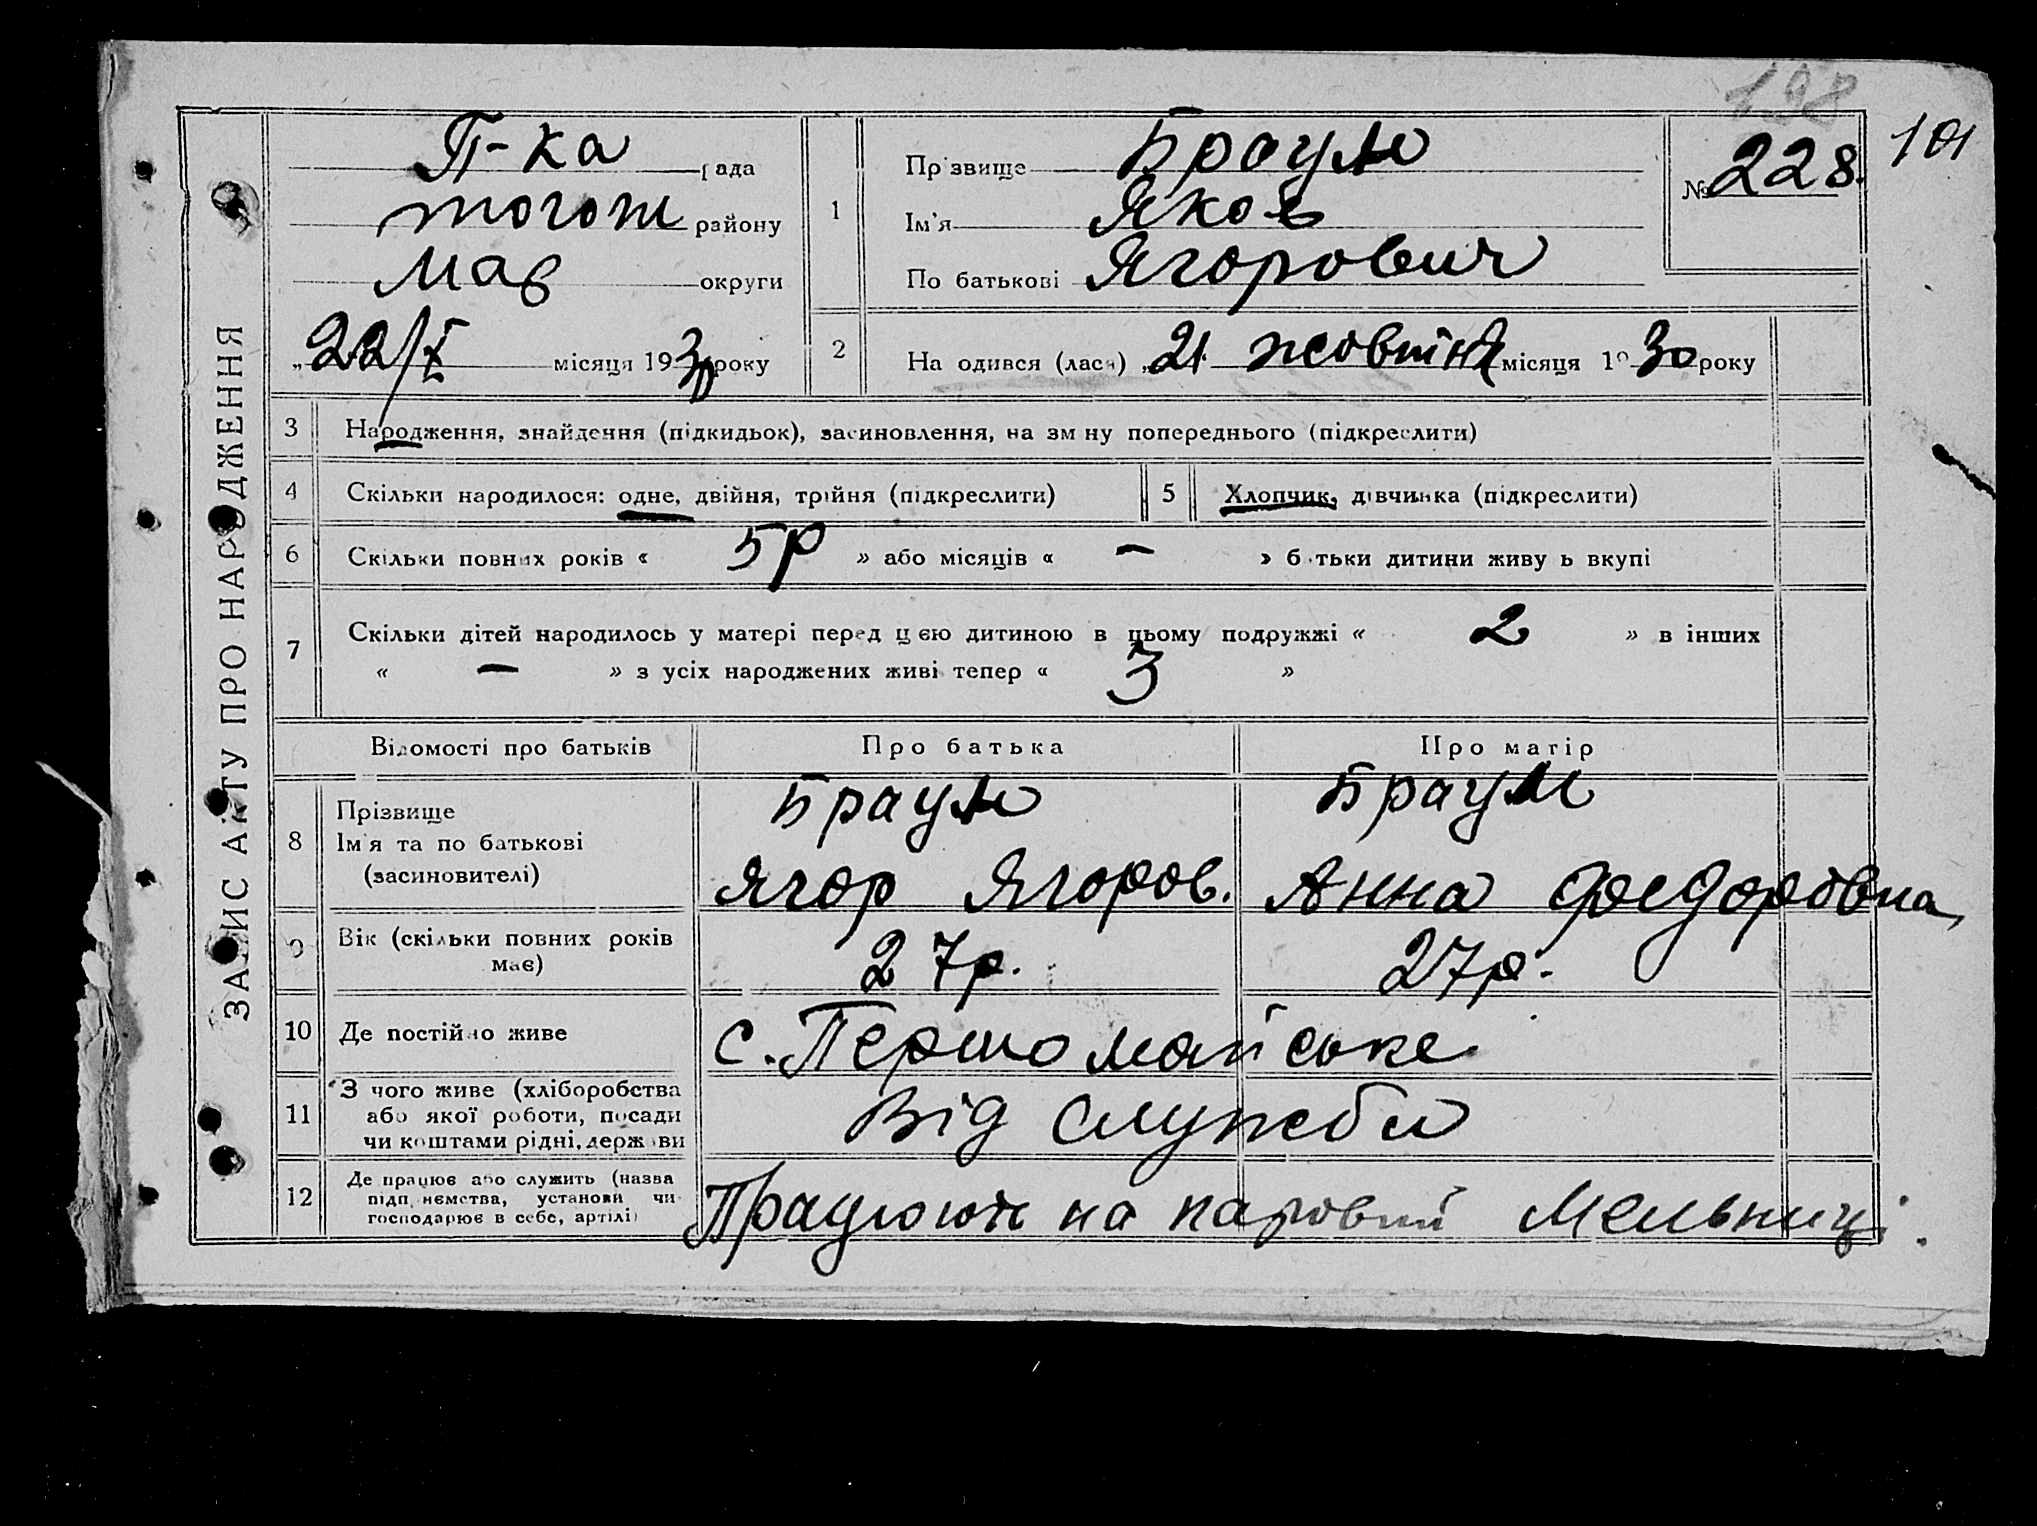 198
101
ЗАПИС АКТУ ПРО НАРОДЖЕННЯ
П-ка рада
тогож району
Мар округи
„22/X місяця 1930 року
1
Прізвище Браун
Ім'я Яков
По батькові Ягорович
№ 228.
2
На одився (лася) „21 жовтня місяця 1930 року
3 Народження, знайдення (підкидьок), засиновлення, на зміну попереднього (підкреслити)
4 Скільки народилося: одне, двійня, трійня (підкреслити)
5 Хлопчик, дівчинка (підкреслити)
6 Скільки повних років « 5р » або місяців « — » батьки дитини живуть вкупі
7 Скільки дітей народилось у матері перед цією дитиною в цьому подружжі « 2 » в інших
« — » з усіх народжених живі тепер « 3 »
Відомості про батьків Про батька Про матір
8 Прізвище Браун Браун
Ім'я та по батькові
(засиновителі) Ягор Ягоров. Анна Фоедоровна
9 Вік (скільки повних років
має) 27р. 27р.
10 Де постійно живе с. Першомайське
11 З чого живе (хліборобства
або якої роботи, посади
чи коштами рідні, держави Від служби
12 Де працює або служить (назва
підприємства, установи чи
господарює в себе, артілі) Працюють на паровий мельниці.